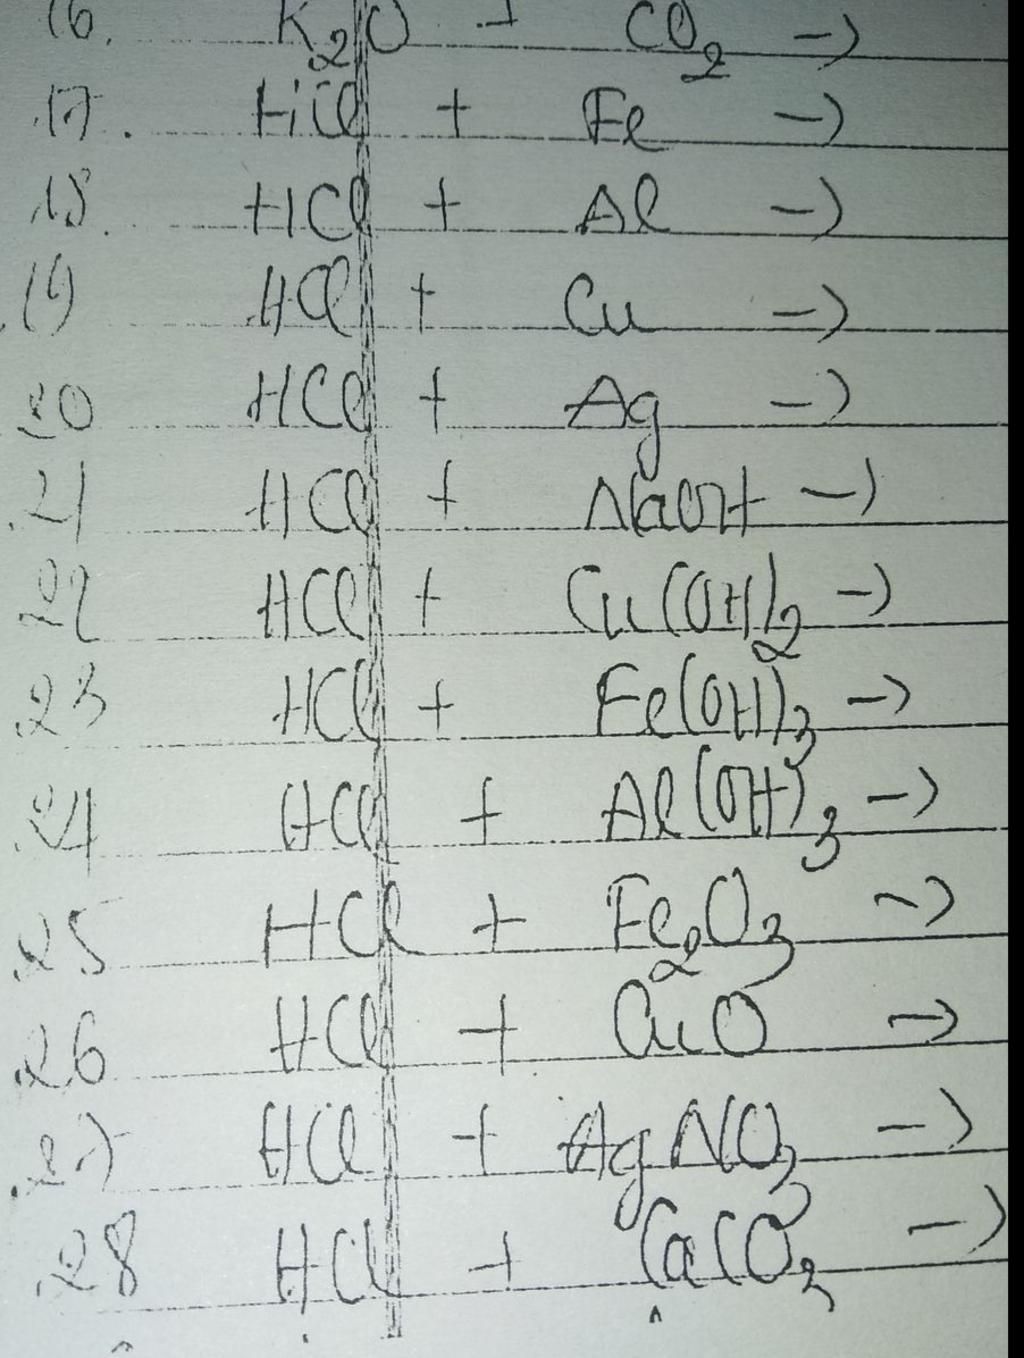 16. K₂O + CO₂ →
17. HCl + Fe →
18. HCl + Al →
19 HCl + Cu →
20 HCl + Ag →
21 HCl + NaOH →
22 HCl + Cu(OH)₂ →
23 HCl + Fe(OH)₃ →
24 HCl + Al(OH)₃ →
25 HCl + Fe₂O₃ →
26 HCl + CuO →
27 HCl + AgNO₃ →
28 HCl + CaCO₃ →